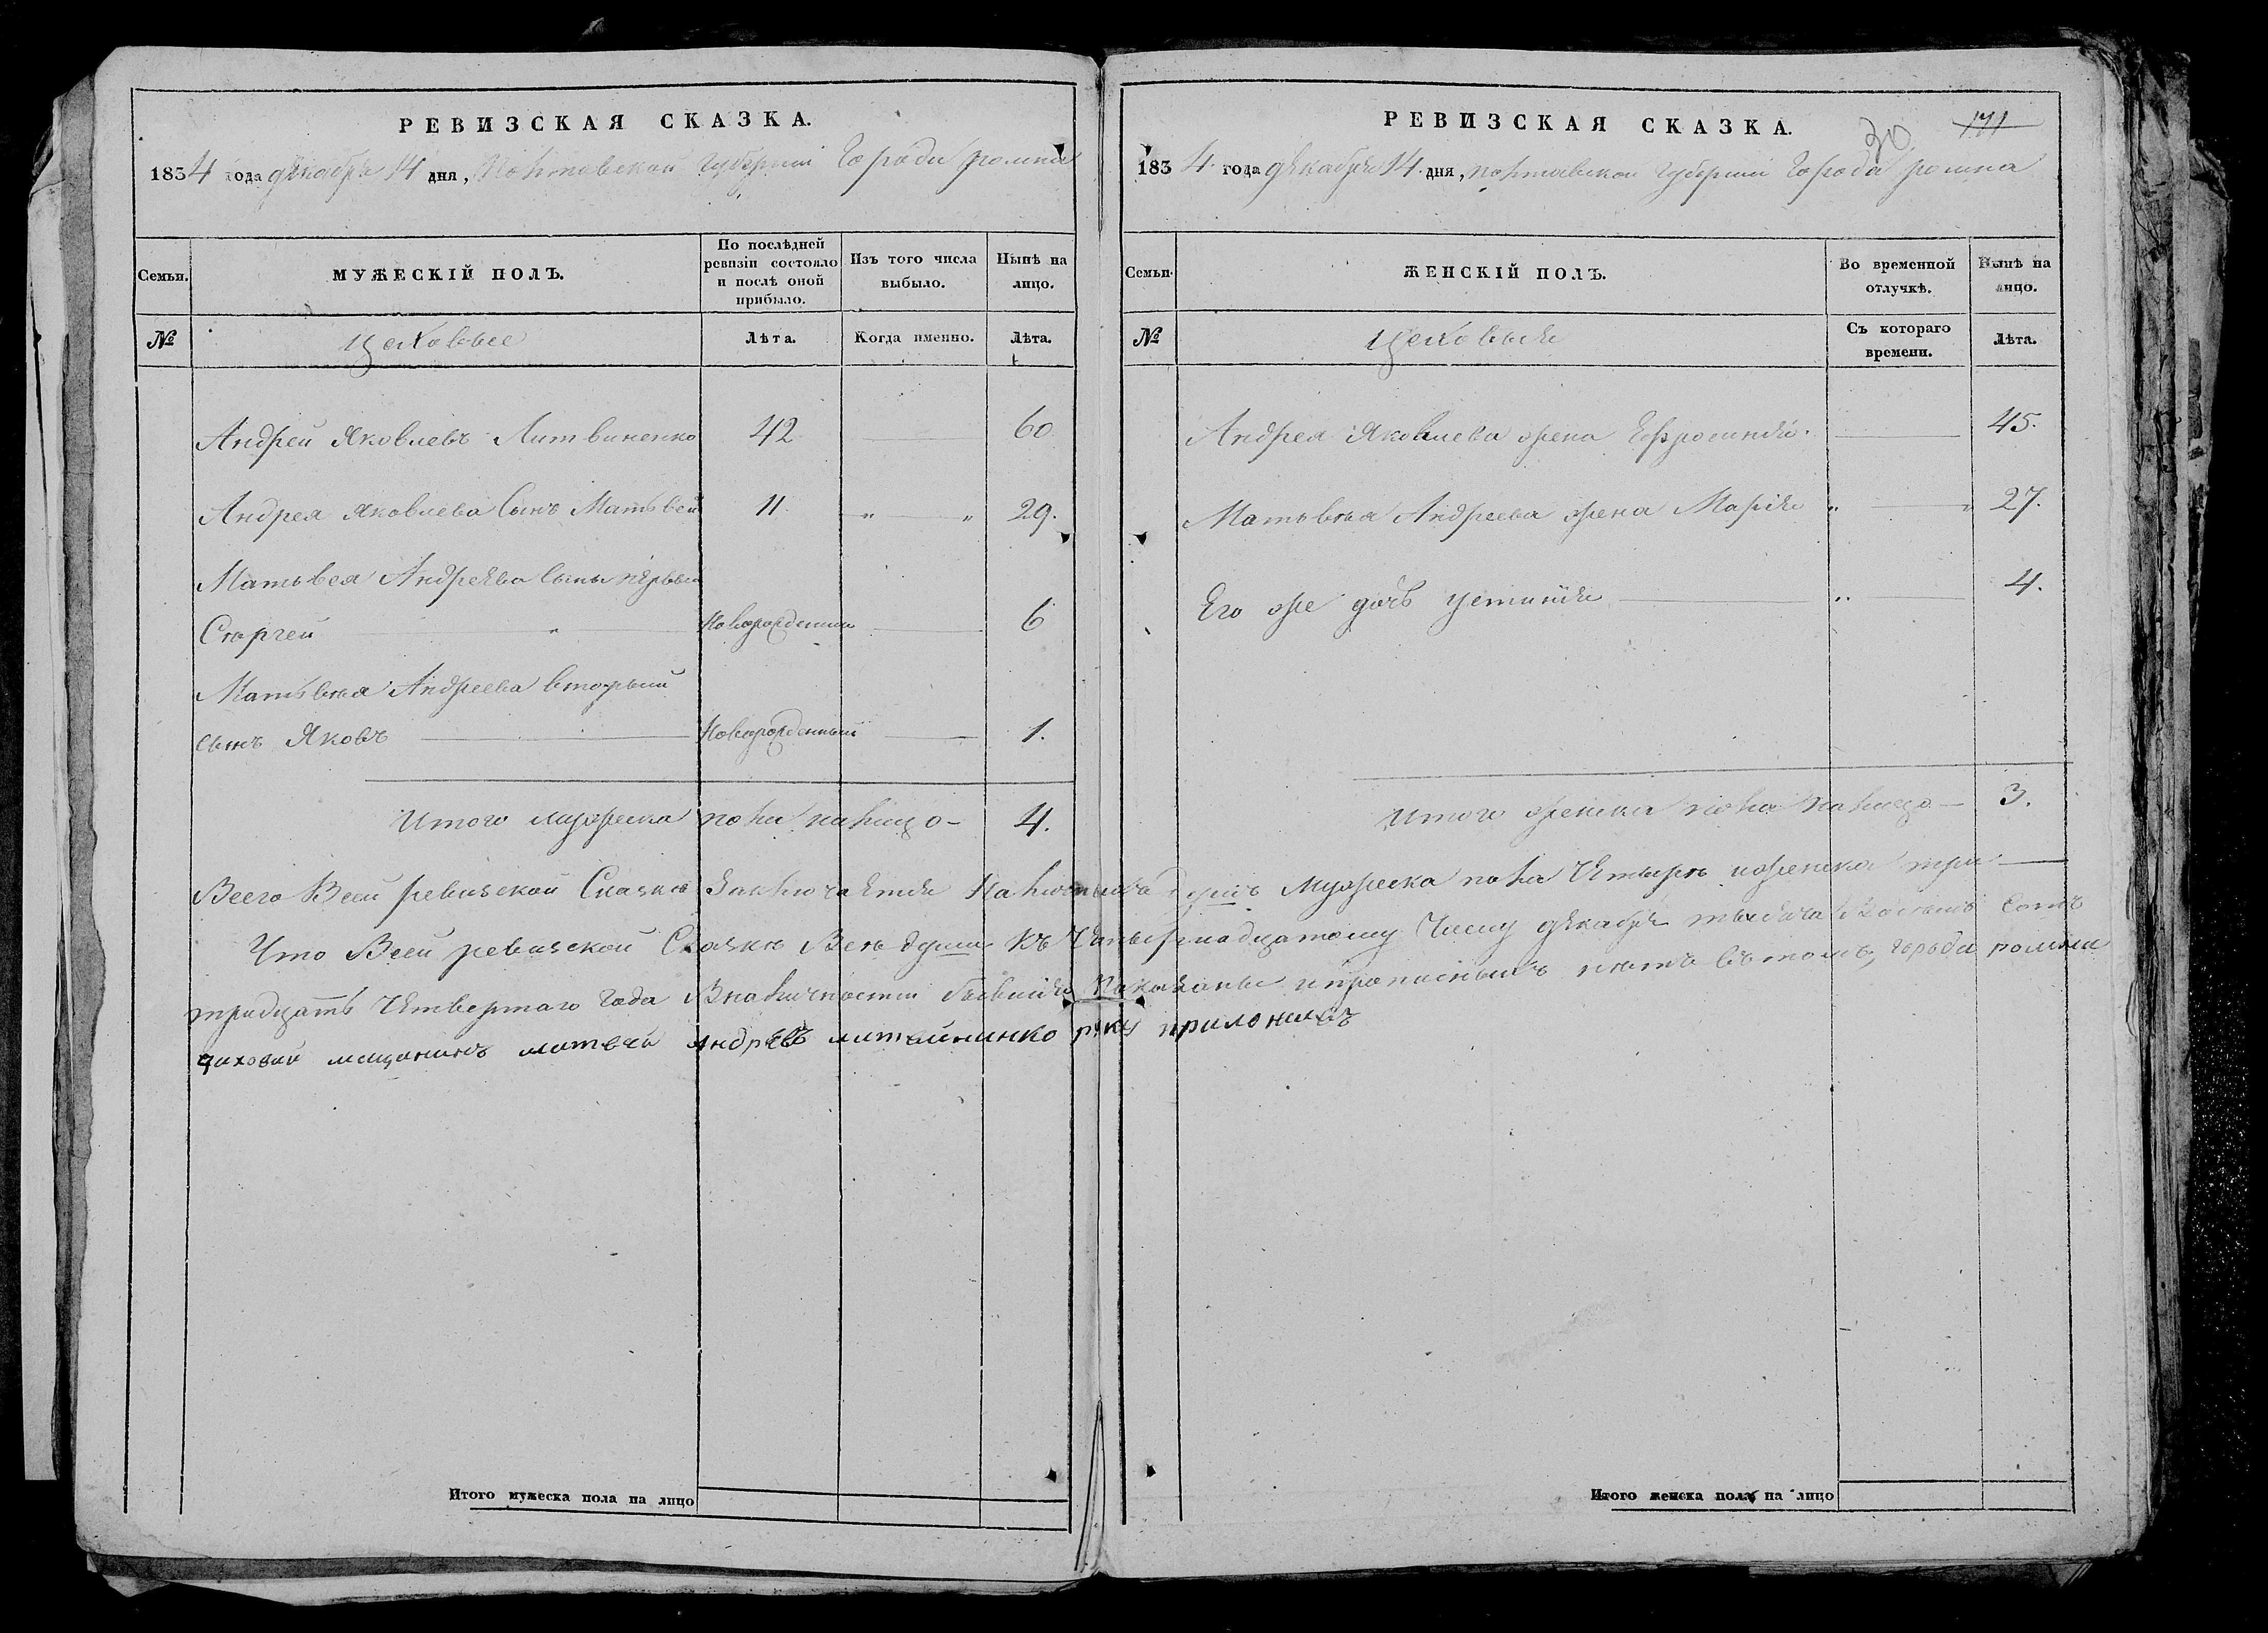 РЕВИЗСКАЯ СКАЗКА.
1834 года декабря 14 дня, Полтовской губернии Города ромна
Семьи.
МУЖЕСКІЙ ПОЛЪ.
По послѣдней ревизіи состояло и послѣ оной прибыло.
Изъ того числа выбыло.
Нынѣ на лицо.
№
цеховые
Лѣта.
Когда именно.
Лѣта.
Андрей Яковлевъ Литвиненко 42 60
Андрея Яковлева Сынъ Матьвей 11 " " 29.
Матьвея Андреева сыны первый
Сергей " Новорожденный 6
Матьвея Андреева вторый
сынъ Яковъ Новорожденный 1.
Итого мужеска пола налицо 4.
РЕВИЗСКАЯ СКАЗКА.
30 171
1834 года декабря 14 дня, полтавской губернии Города ромна
Семьи.
ЖЕНСКІЙ ПОЛЪ.
Во временной отлучкѣ.
Нынѣ на лицо.
№
цеховыя
Съ котораго времени.
Лѣта.
Андрея Яковлева жена Ефросиния. 45.
Матьвея Андреева жена Мария " " 27.
Его же дочь устиния " 4.
Итого женска пола налицо 3.
Всего Всей ревизской Сказке Заключается Наличныхъ душъ Мужеска пола Четыре иженска три
Что Всей ревизской Сказке Все души къ Четырнадцатому Числу декабря тысяча восемь сотъ
тридцать Четвертаго Года Вналичности бывшия Показаны ипрописныхъ нетъ Вътомъ, города ромна
цаховий мещанинъ матвей андреевъ литвиненко руку приложилъ
Итого мужеска пола на лицо
Итого женска пола на лицо